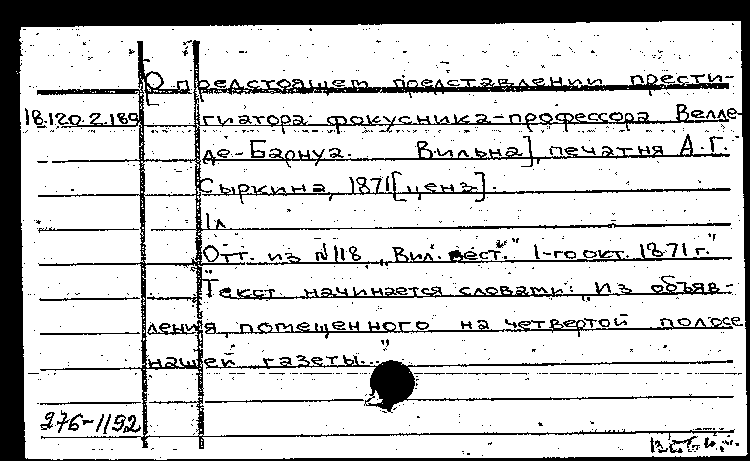 [О предстоящем представлении прести-
18.120.2.189 гиатора фокусника-профессора Велле-
де-Барнуа. Вильна], печатня А.Г.
Сыркина, 1871 [ценз].
1л
Отт. из №118 "Вил. вест." 1-го окт. 1871 г."
"Текст начинается словами: "Из объяв-
ления, помещенного на четвертой полосе
нашей газеты..."
276-1192